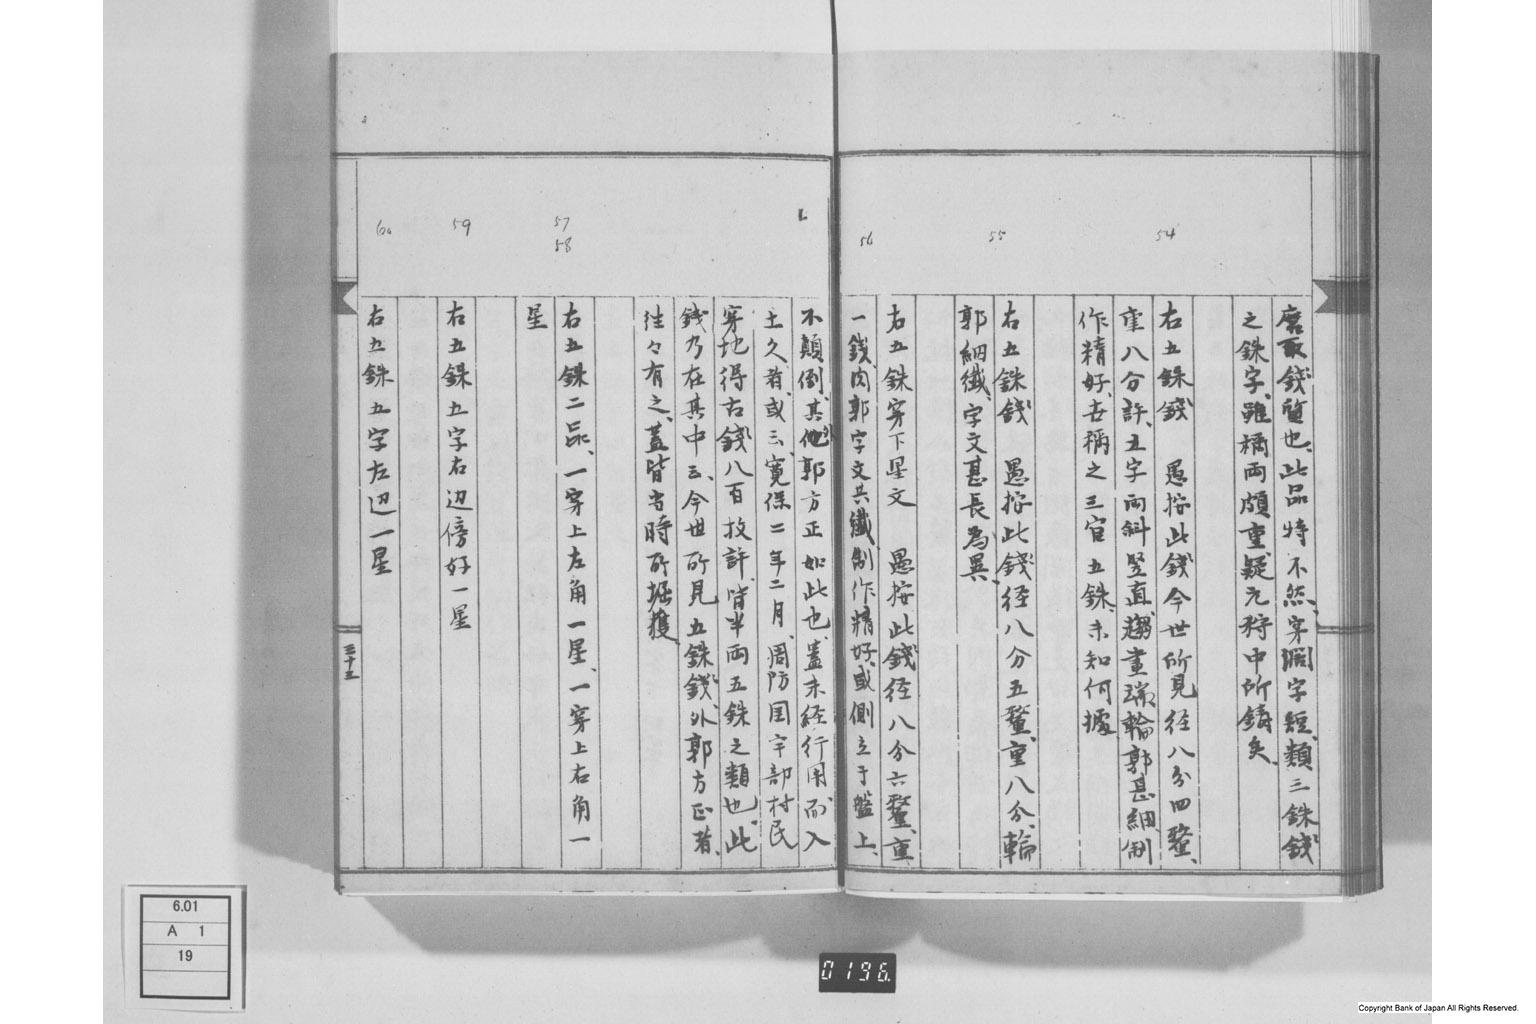 54
55
56
磨取錢質也、此品特不然、穿濶字短、類三銖錢
之銖字、雖稱兩頗重、疑元狩中所鑄矣、
右五銖錢 愚按此錢今世所見径八分四釐、
重八分許、五字兩斜竪直、畫端輪郭甚細、制
作精好、世稱之三官五銖、未知何據
右五銖錢 愚按此錢径八分五釐、重八分、輪
郭細纎、字文甚長為異、
右五銖穿下星文 愚按此錢径八分六釐、重
一錢、肉郭字文共纎、制作精好、或側立于盤上、
不顛倒、其他外郭方正如此也、蓋未経行用、而入
土久者、或云、寛保二年二月、周防国宇部村民
穿地得古錢八百枚許、皆半両五銖之類也、此
錢乃在其中云、今世所見五銖錢、外郭方正者、
往々有之、蓋皆当時所堀獲、
57
58
右五銖二品、一穿上左角一星、一穿上右角一
星
59
右五銖五字右辺傍好一星
60
右五銖五字左辺一星
三十三
6.01
A 1
19
0196.
Copyright Bank of Japan All Rights Reserved.